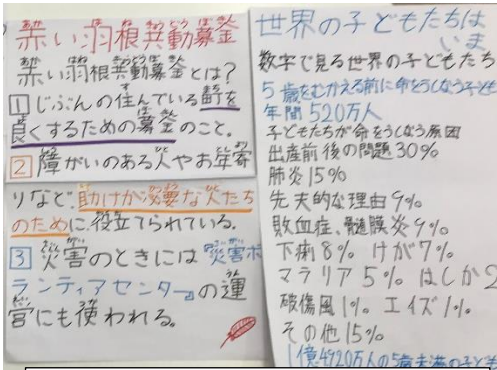 赤い羽根共動募金
赤い羽根共動募金とは?
1 じぶんの住んでいる町を
良くするための募金のこと。
2 障がいのある人やお年寄
りなど、助けが必要な人たち
のために役立てられている。
3 災害のときには『災害ボ
ランティアセンター』の運
営にも使われる。
世界の子どもたちは
いま
数字で見る世界の子どもたち
5歳をむかえる前に命をうしなう子ども
年間520万人
子どもたちが命をうしなう原因
出産前後の問題30%
肺炎15%
先天的な理由9%
敗血症、髄膜炎9%
下痢8% けが7%
マラリア5% はしか2
破傷風1% エイズ1%
その他15%
1億4920万人の5歳未満の子ども